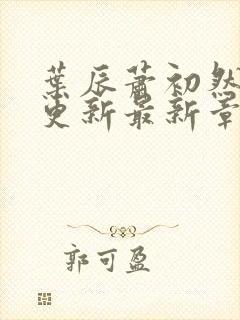 葉辰蕭初然
更新最新章
郭可盈